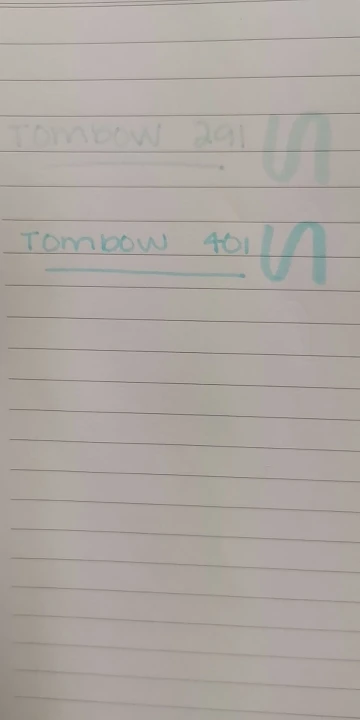 Tombow 291
Tombow 401